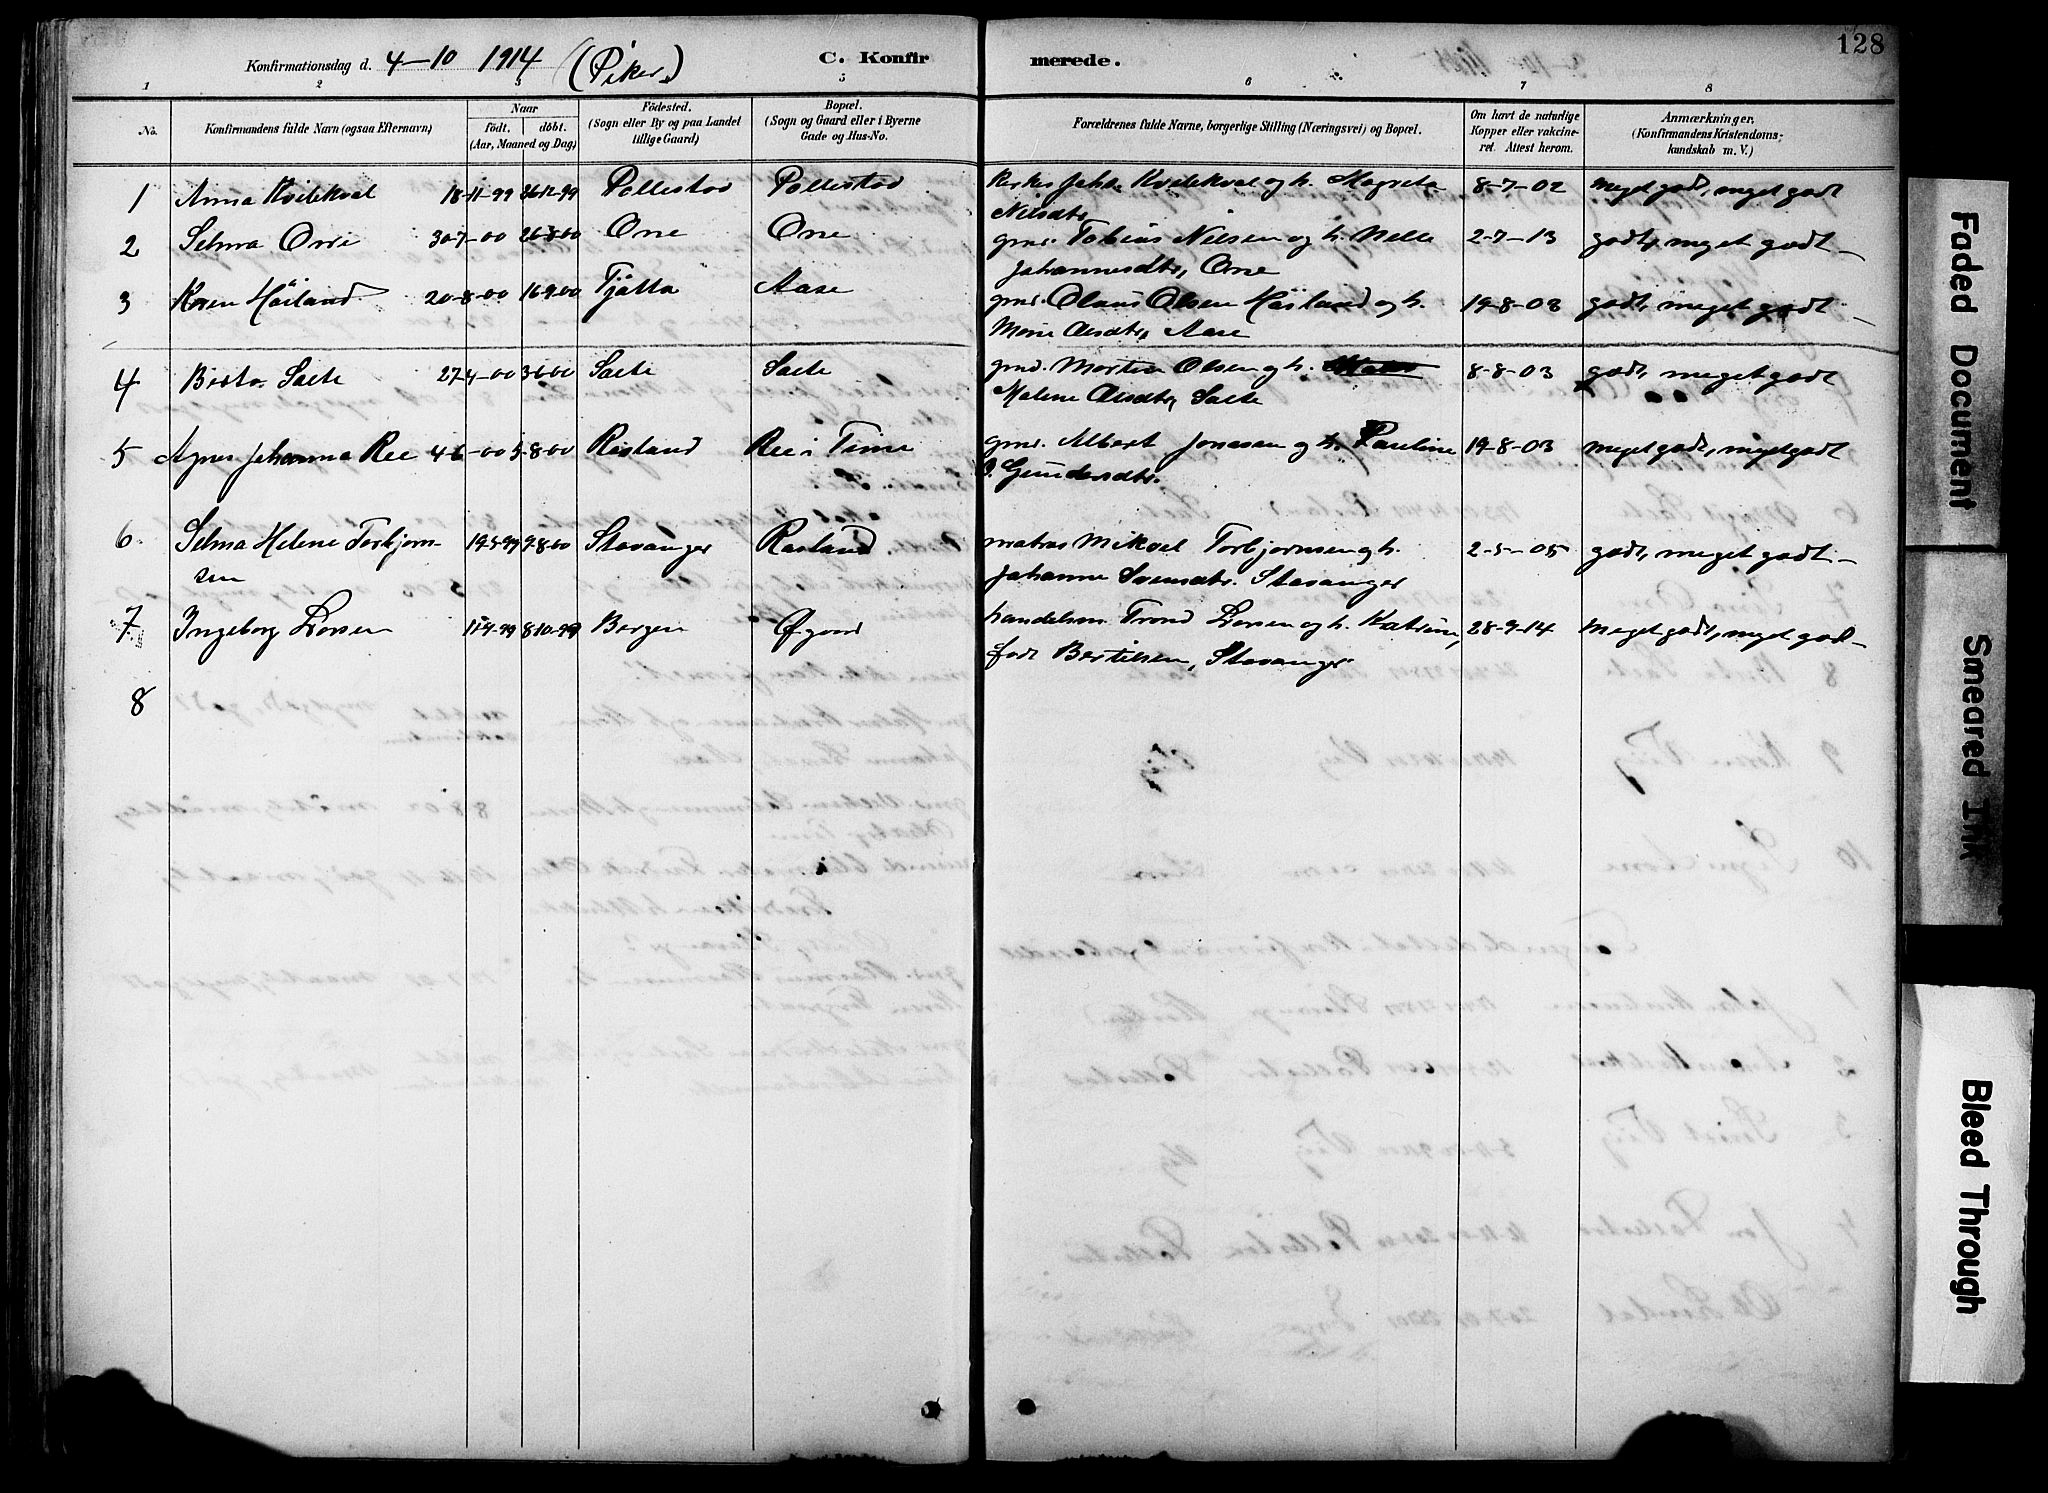 128
Konfirmationsdag d. 4-10 1914 (Piker) C. Konfirmerede.
1 2 3 5 6 7 8
No. Konfirmandens fulde Navn (ogsaa Efternavn) Naar födt. döbt. (Aar, Maaned og Dag) Födested. (Sogn eller By og paa Landet tillige Gaard) Bopæl. (Sogn og Gaard eller i Byerne Gade og Hus-No. Forældrenes fulde Navne, borgerlige Stilling (Næringsvei) og Bopæl. Om havt de naturlige Kopper eller vakcineret. Attest herom. Anmærkninger. (Konfirmandens Kristendomskundskab m. V.)
1 Anna Kvilekval 18-11-99 26-12-99 Pollestad Pollestad Kvilekval og h. Magreta 8-7-02 meget godt, meget godt
Nilsdtr.
2 Selma Orre 30-7-00 26-8-00 Orre Orre gmd. Tobias Nilsen og h. Nelle 2-7-13 godt, meget godt
Johannesdtr, Orre
3 Karen Höiland 20-8-00 16-9-00 Tjötta Aase gmd. Olaus Olsen Höiland og h. 19-8-03 godt, meget godt
Marie Olsdtr, Aase
4 Berta Salte 27-4-00 3-6-00 Salte Salte gmd. Morten Olsen og h. 8-8-03 godt, meget godt
Malene Olsdtr, Salte
5 Agnes Johanna Ree 4-6-00 5-8-00 Rosland Ree i Time gmd. Albert Jonassen og h. Pauline 19-8-03 meget godt, meget godt
Gundersdtr.
6 Selma Helene Torbjornsen 19-5-99 9-8-00 Stavanger Rosland matros Mikval Torbjornsen og h. 2-5-05 godt, meget godt
Johanne Svensdtr. Stavanger
7 Ingeborg Larsen 11-9-99 8-10-99 Bergen Øgard handelsm. Trond Larsen og h. Katrine, 28-9-14 Meget godt, meget godt
födt Bertilsen, Stavanger
8
Faded Document
Smeared Ink
Bleed Through